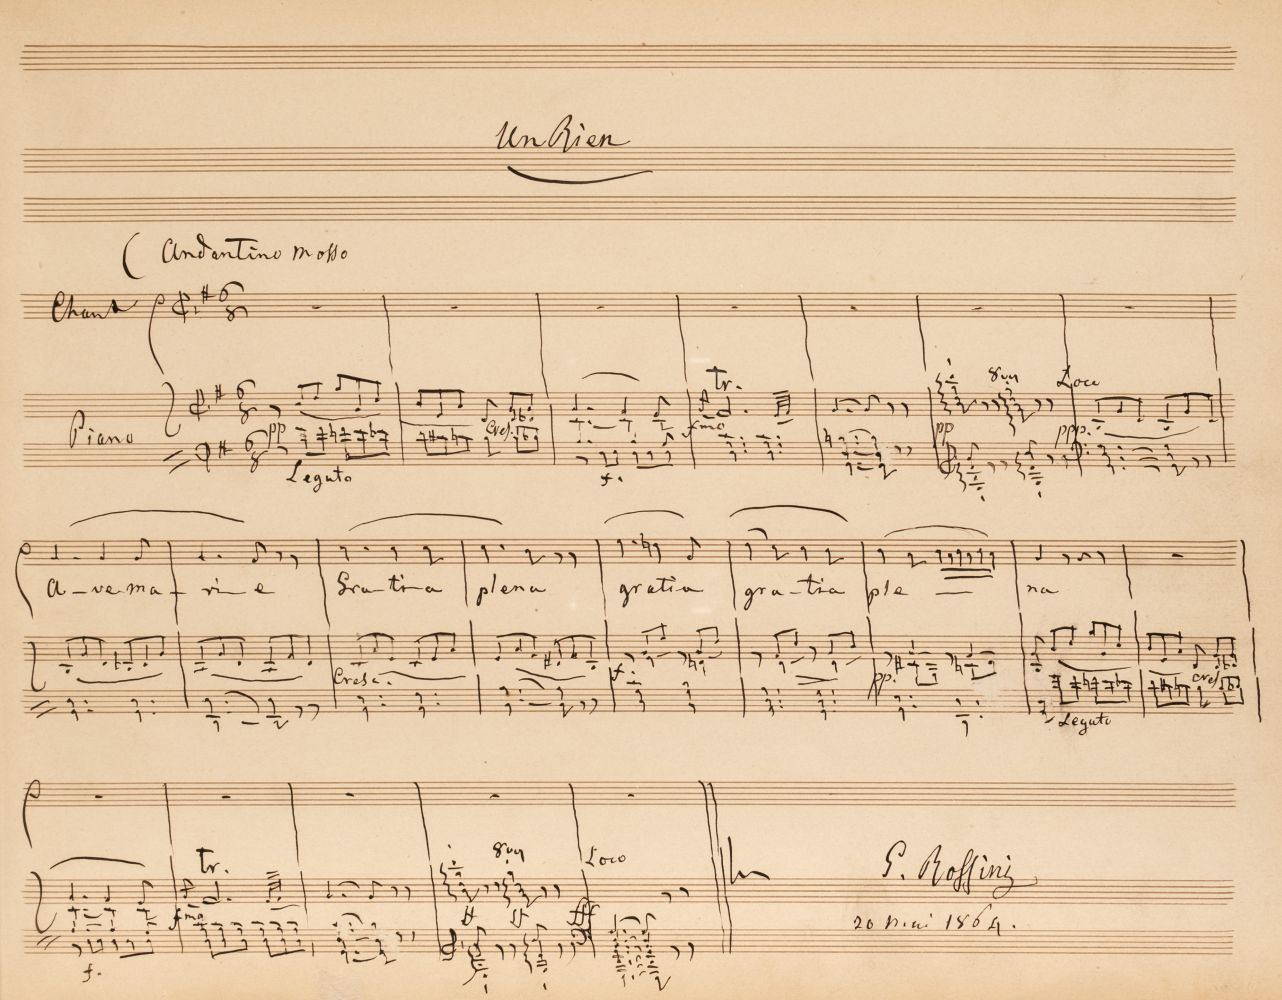 Un Rien
Andantino mosso
Chant
Piano
pp
cresc.
tr.
fmo
pp
8va
Loco
ppp.
Legato
f.
A-ve ma-ri-e Gra-ti-a plena gratia gra-tia ple — na
Cresc.
f
pp.
cresc.
Legato
tr.
8va
Loco
fmo
ff
ff
fff
f.
G. Rossini
20 Mai 1864.